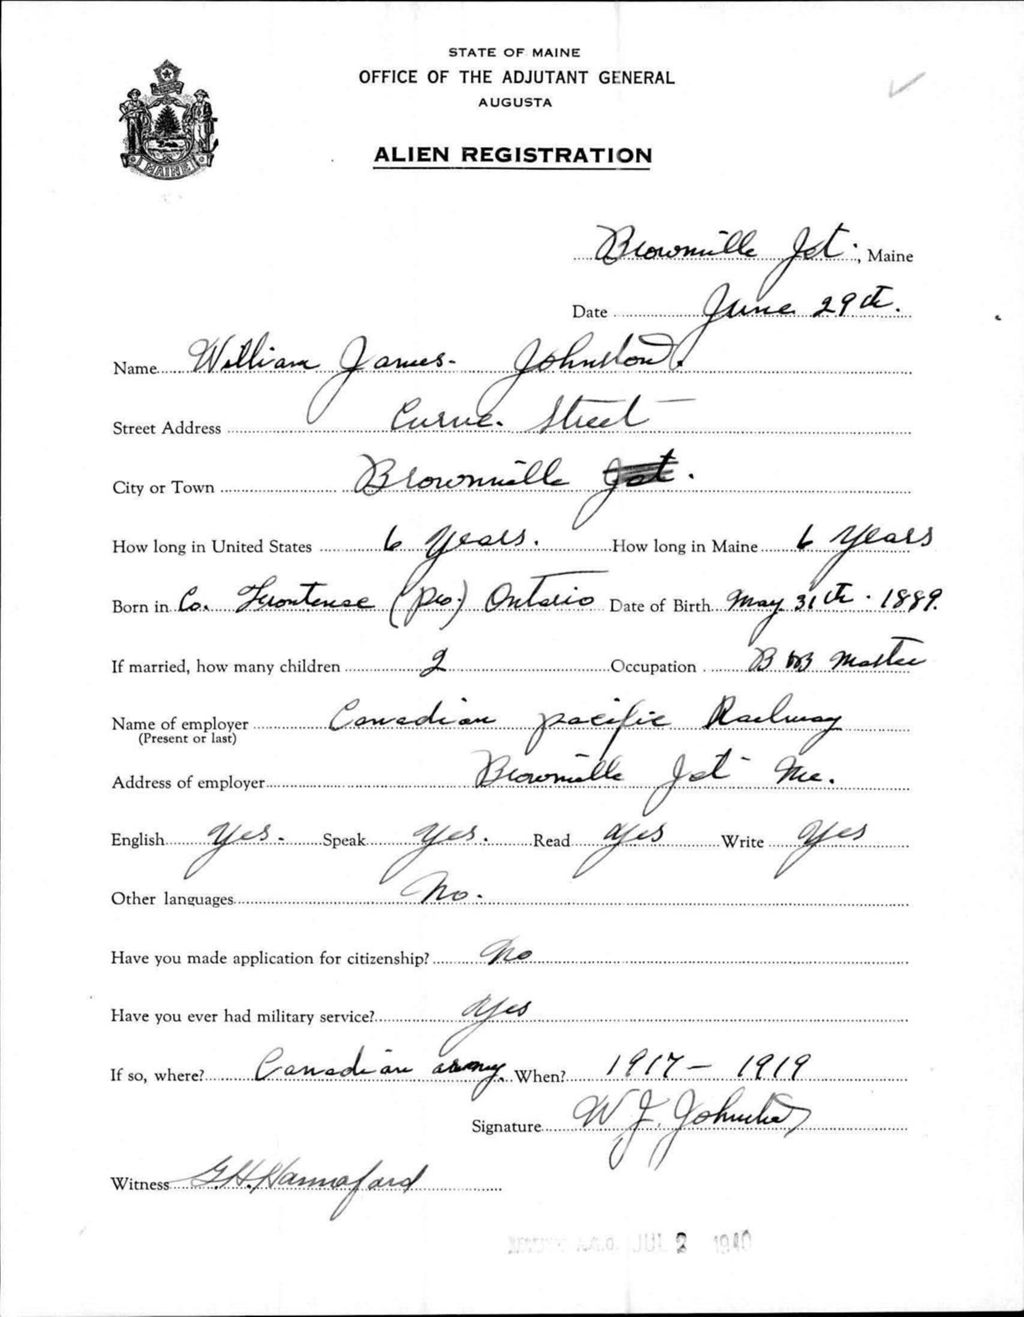 STATE OF MAINE
OFFICE OF THE ADJUTANT GENERAL
AUGUSTA
ALIEN REGISTRATION
MAINE
Brownville Jct., Maine
Date June 29th.
Name William James Johnston.
Street Address Curve Street
City or Town Brownville Jct.
How long in United States 6 Years. How long in Maine 6 Years
Born in Co. Frontenac (Pro.) Ontario Date of Birth May 31th. 1889.
If married, how many children 2 Occupation B & B Master
Name of employer Canadian pacific Railway
(Present or last)
Address of employer Brownville Jct Me.
English Yes. Speak Yes. Read Yes Write Yes
Other languages No.
Have you made application for citizenship? No
Have you ever had military service? Yes
If so, where? Canadian army. When? 1917 – 1919
Signature W J. Johnston
Witness G.H. Hannaford
A.G.O. JUL 2 1940